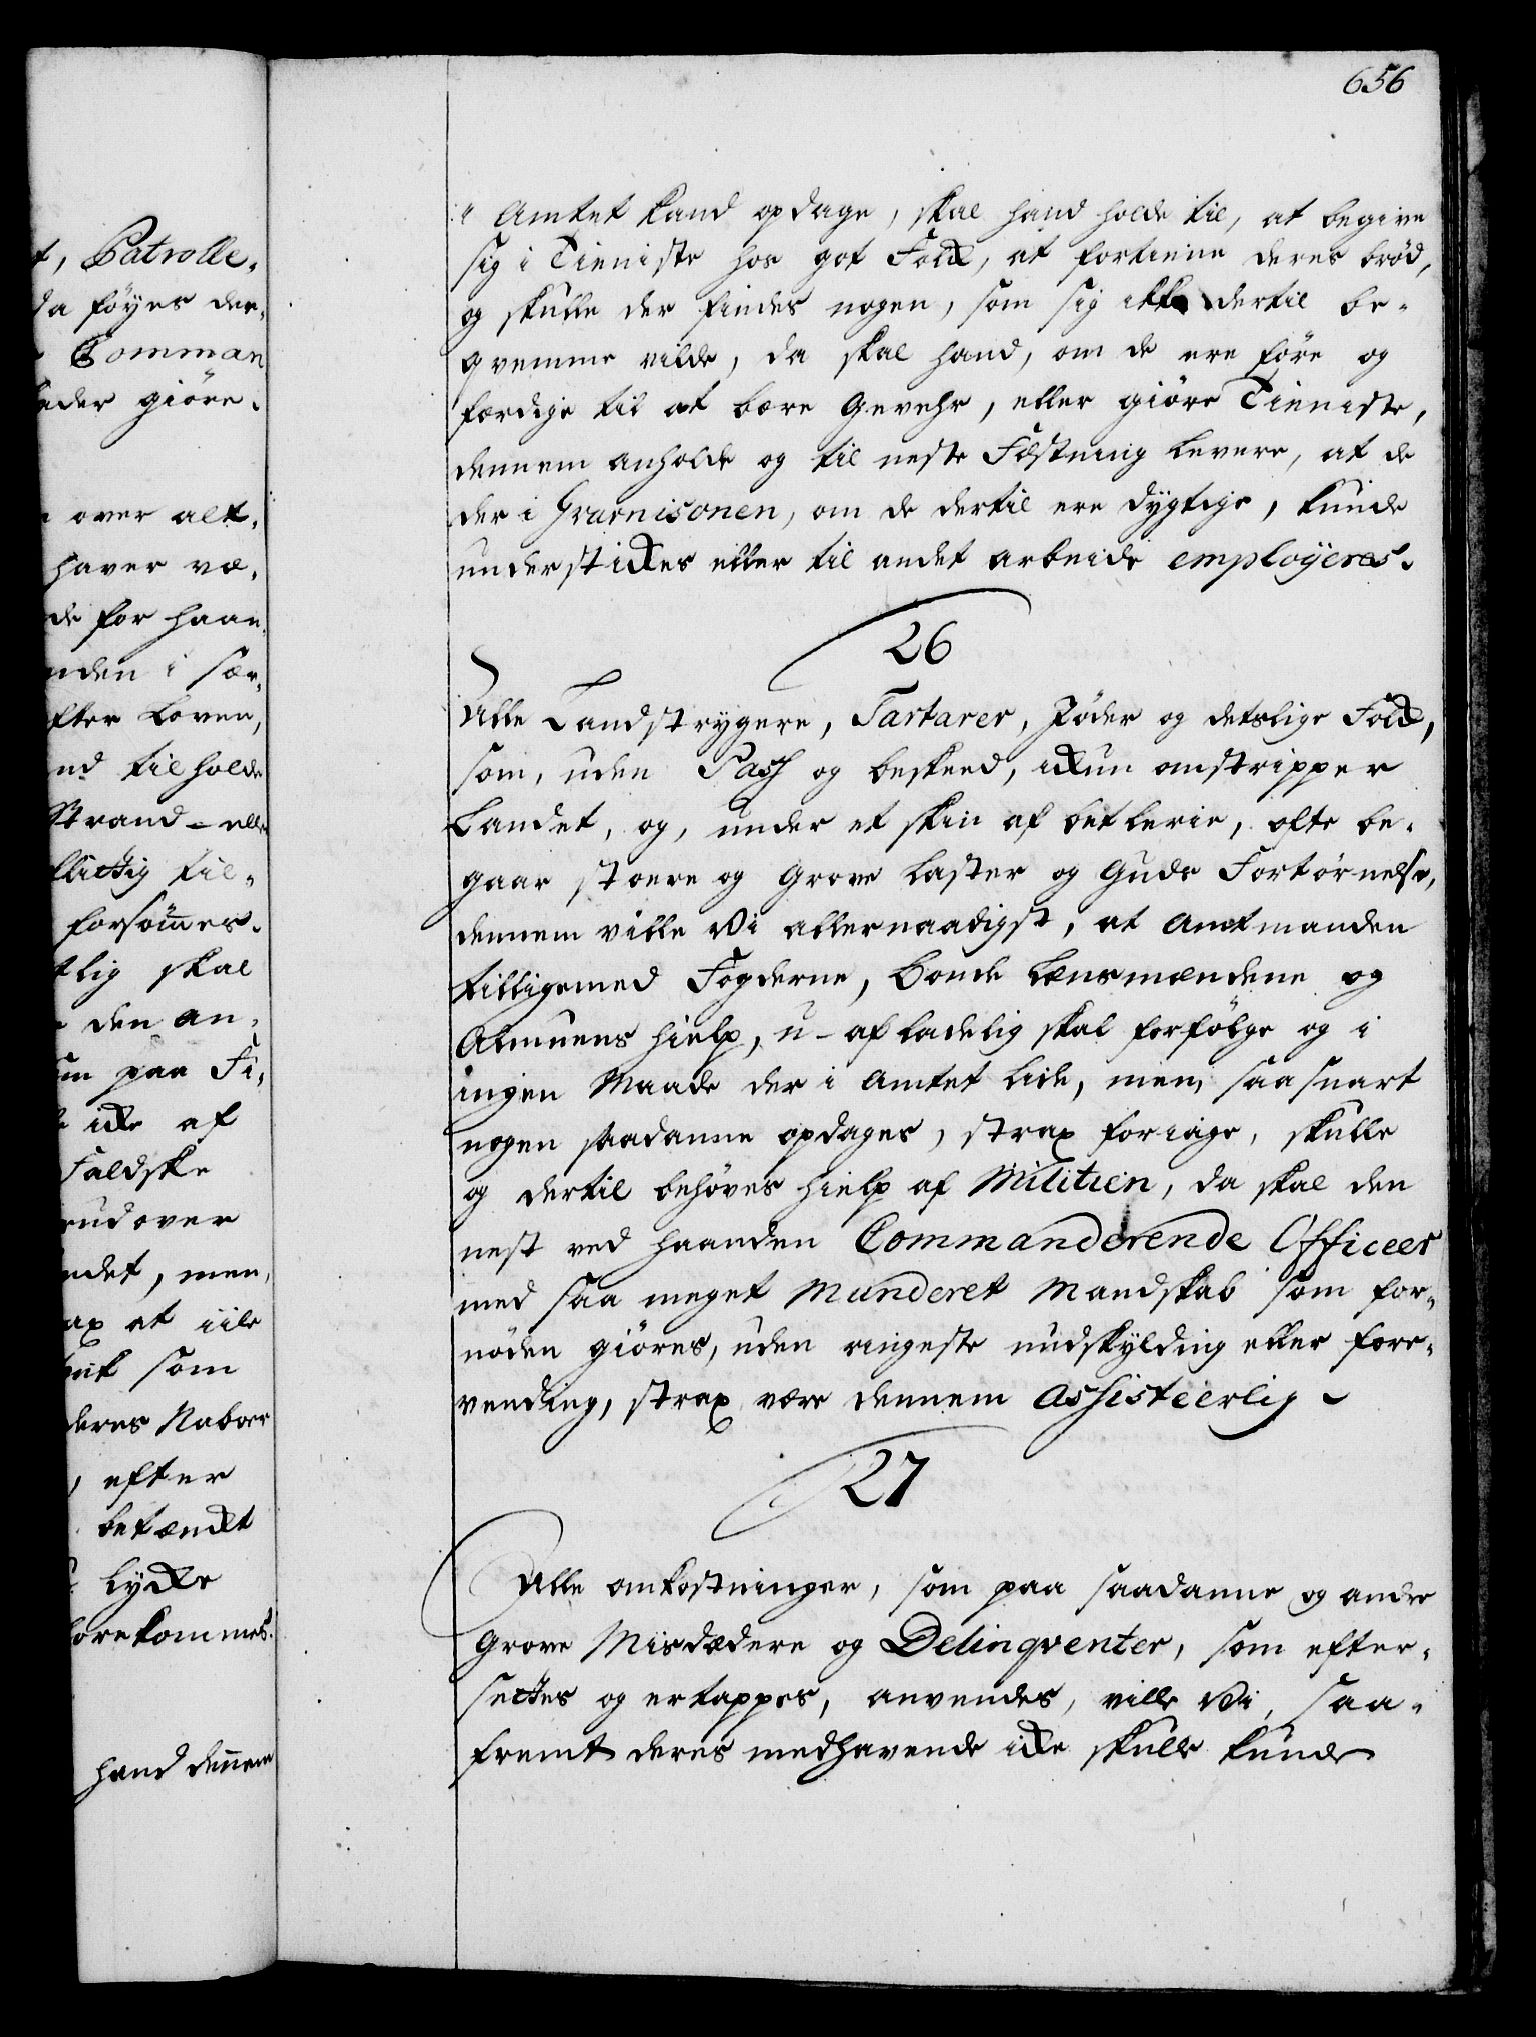 656
t, Patrolle-
da föyes der,
Comman
eder giöre.
over alt,
haver væ,
de for haan,
nden i sær,
fter Loven,
nd tilholde
Strand - elle
flittig til,
forsömes.
tlig skal
den an,
paa Fi,
icke af
Faldske
rudover
ndet, men,
ax at iile
som
deres Naboer
, efter
betændt
lycke
forekommes.
hand dennem
" Amtet kand opdage, skal hand holde til, at begive
sig i Tieniste hos got Folck, at fortiene deres bröd,
og skulle der findes nogen, som sig ikke dertil be-
qvemme vilde, da skal hand, om de ere före og
færdige til at bære Gevehr, eller giöre Tieniste,
dennem anholde og til neste Fæstning levere, at de
der i Guarnisonen, om de dertil ere dygtige, kunde
understickes eller til andet arbeide employeres.
26
Alle Landstrygere, Tartarer, Jöder og detslige Folck,
som, uden Pass og beskeed, ickun omstripper
Landet, og, under et skin af betlerie, ofte be-
gaar stoere og grove laster og Guds Fortörnelse,
dennem ville Vi allernaadigst, at Amtmanden
tilligemed Fogderne, Bonde Lænsmændene og
Almuens hielp, u-afladelig skal forfölge og i
ingen Maade der i Amtet lide, men, saasnart
nogen saadanne opdages, strax foriage, skulle
og dertil behöves hielp af Militien, da skal den
nest ved haanden Commanderende Officeer
med saa meget Munderet Mandskab som for-
nöden giöres, uden ringeste undskylding eller fore-
vending, strax være dennem assisteerlig -
27
Alle omkostninger, som paa saadanne og andre
grove Misdædere og Delinqventer, som efter-
settes og ertappes, anvendes, ville Vi, saa-
fremt deres medhavende icke skulle kunde